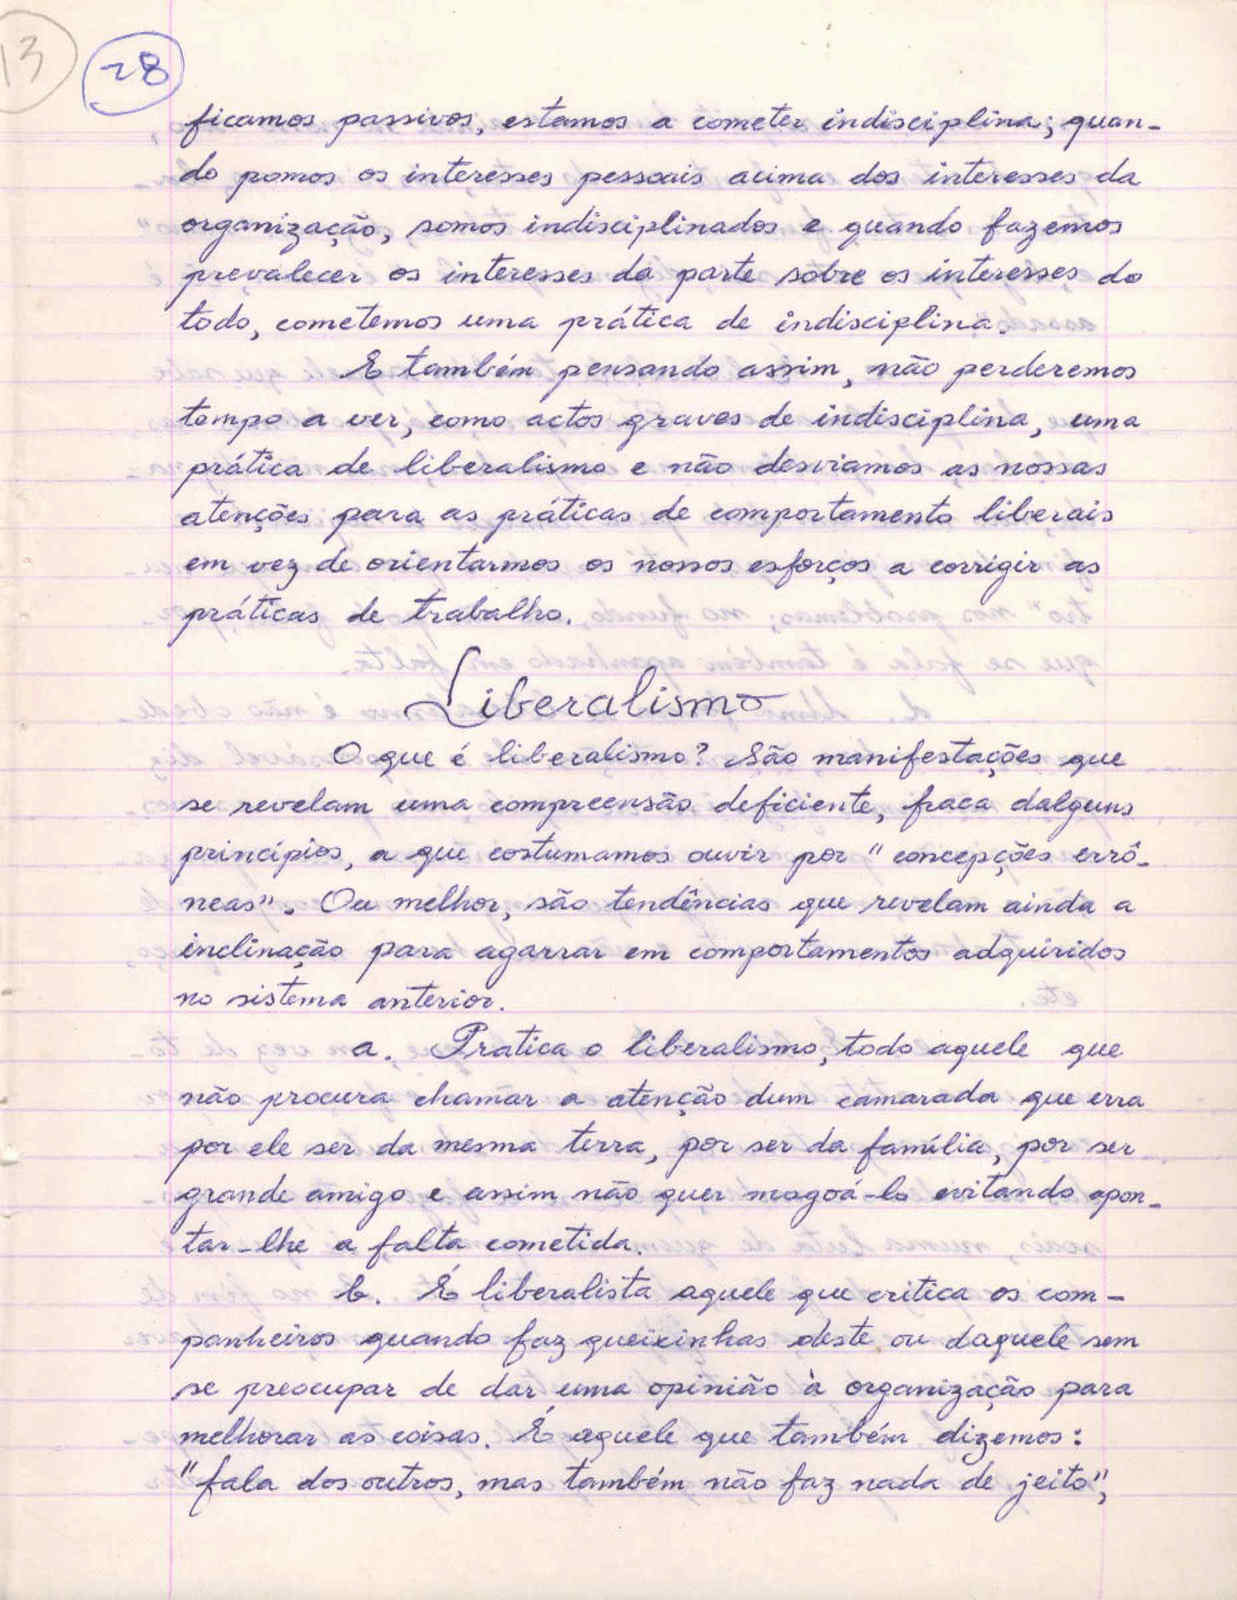 13
28
ficamos passivos, estamos a cometer indisciplina; quan-
do pomos os interesses pessoais acima dos interesses da
organização, somos indisciplinados e quando fazemos
prevalecer os interesses da parte sobre os interesses do
todo, cometemos uma prática de indisciplina.
E também pensando assim, não perderemos
tempo a ver, como actos graves de indisciplina, uma
prática de liberalismo e não desviamos as nossas
atenções para as práticas de comportamento liberais
em vez de orientarmos os nossos esforços a corrigir as
práticas de trabalho.
Liberalismo
O que é liberalismo? São manifestações que
se revelam uma compreensão deficiente, fraca dalguns
princípios, a que costumamos ouvir por "concepções errô-
neas". Ou melhor, são tendências que revelam ainda a
inclinação para agarrar em comportamentos adquiridos
no sistema anterior.
a. Pratica o liberalismo, todo aquele que
não procura chamar a atenção dum camarada que erra
por ele ser da mesma terra, por ser da família, por ser
grande amigo e assim não quer magoá-lo evitando apon-
tar-lhe a falta cometida.
b. É liberalista aquele que critica os com-
panheiros quando faz queixinhas deste ou daquele sem
se preocupar de dar uma opinião à organização para
melhorar as coisas. É aquele que também dizemos:
"fala dos outros, mas também não faz nada de jeito",